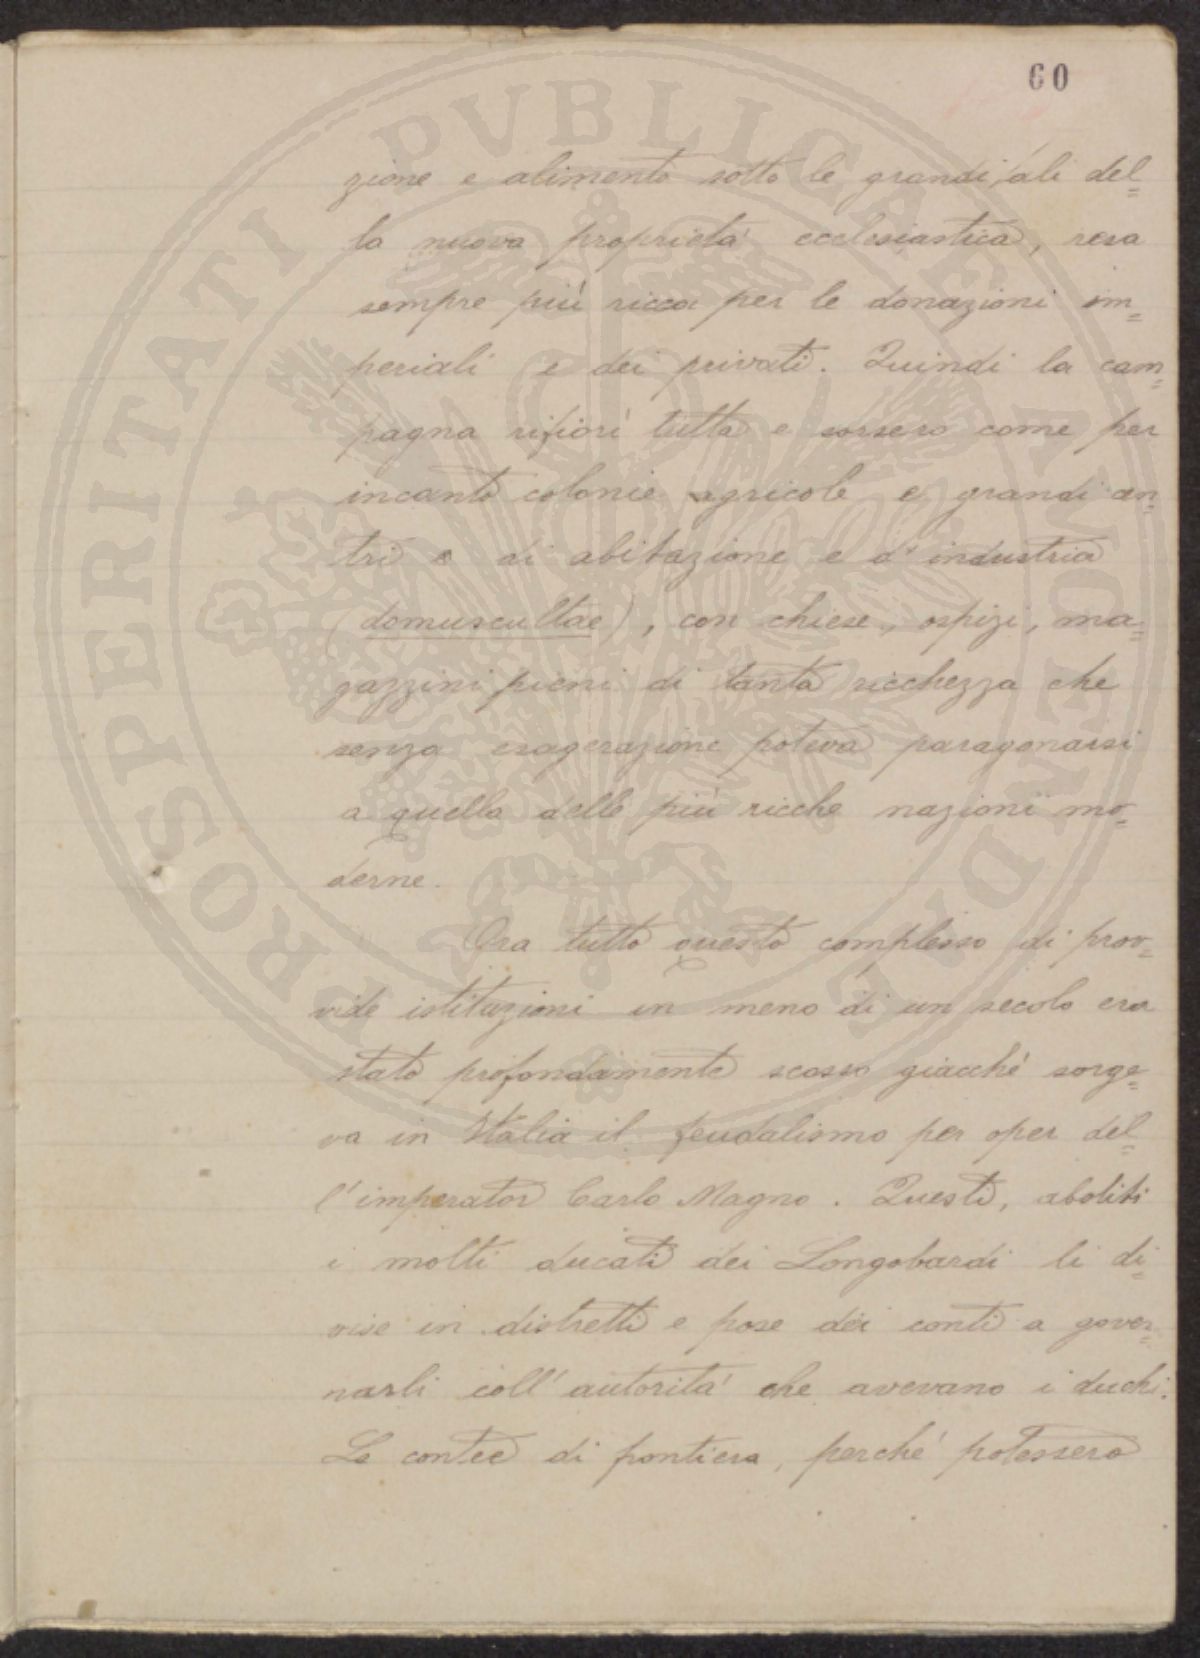 60
zione e alimento sotto le grandi ali del=
la nuova proprietà ecclesiastica, resa
sempre più ricca per le donazioni im=
periali e dei privati. Quindi la cam=
pagna rifiorì tutta e sorsero come per
incanto colonie agricole e grandi cen=
tri di abitazione e d'industria
(domuscultae), con chiese, ospizi, ma=
gazzini pieni di tanta ricchezza che
senza esagerazione poteva paragonarsi
a quella delle più ricche nazioni mo=
derne.
Ora tutto questo complesso di prov=
vide istituzioni in meno di un secolo era
stato profondamente scosso giacché sorge=
va in Italia il feudalismo per oper del=
l'imperator Carlo Magno. Questi, aboliti
i molti ducati dei Longobardi li di=
vise in distretti e pose dei conti a gover=
narli coll'autorità che avevano i duchi.
Le contee di frontiera, perché potessero
PROSPERITATI PVBLICAE AVGENDAE